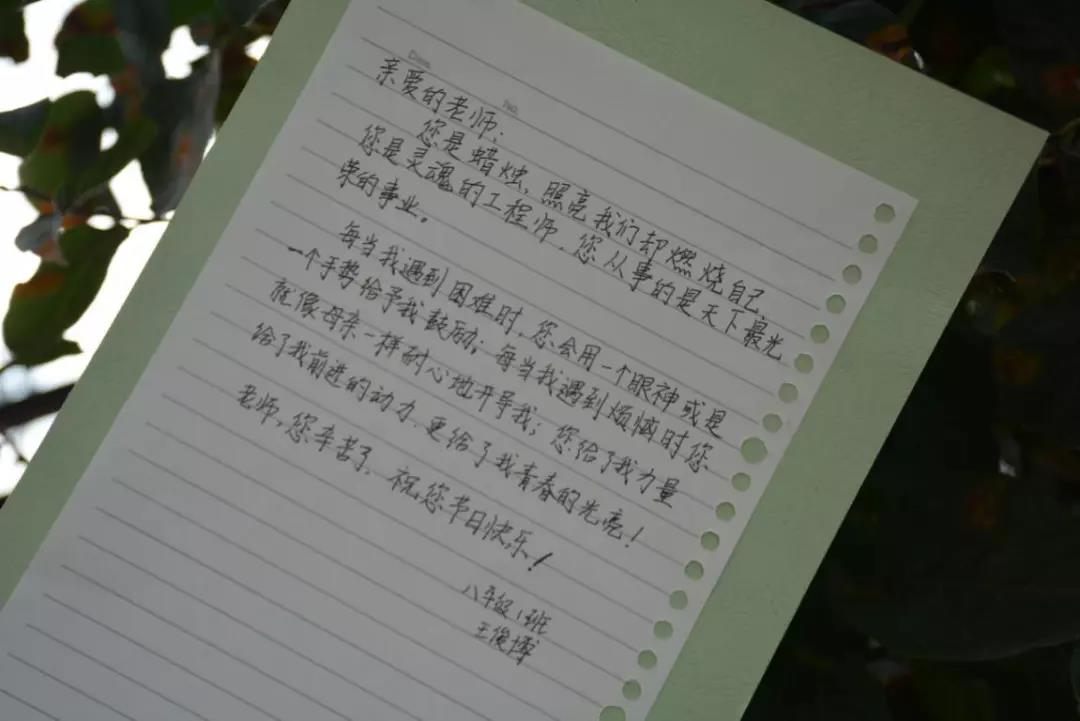 Date.
No.
亲爱的老师：
您是蜡烛，照亮我们却燃烧自己，
您是灵魂的工程师，您从事的是天下最光
荣的事业。
每当我遇到困难时，您会用一个眼神或是
一个手势给予我鼓励；每当我遇到烦恼时您
就像母亲一样耐心地开导我；您给了我力量
给了我前进的动力，更给了我青春的光亮！
老师，您辛苦了，祝您节日快乐！
八年级1班
王俊博